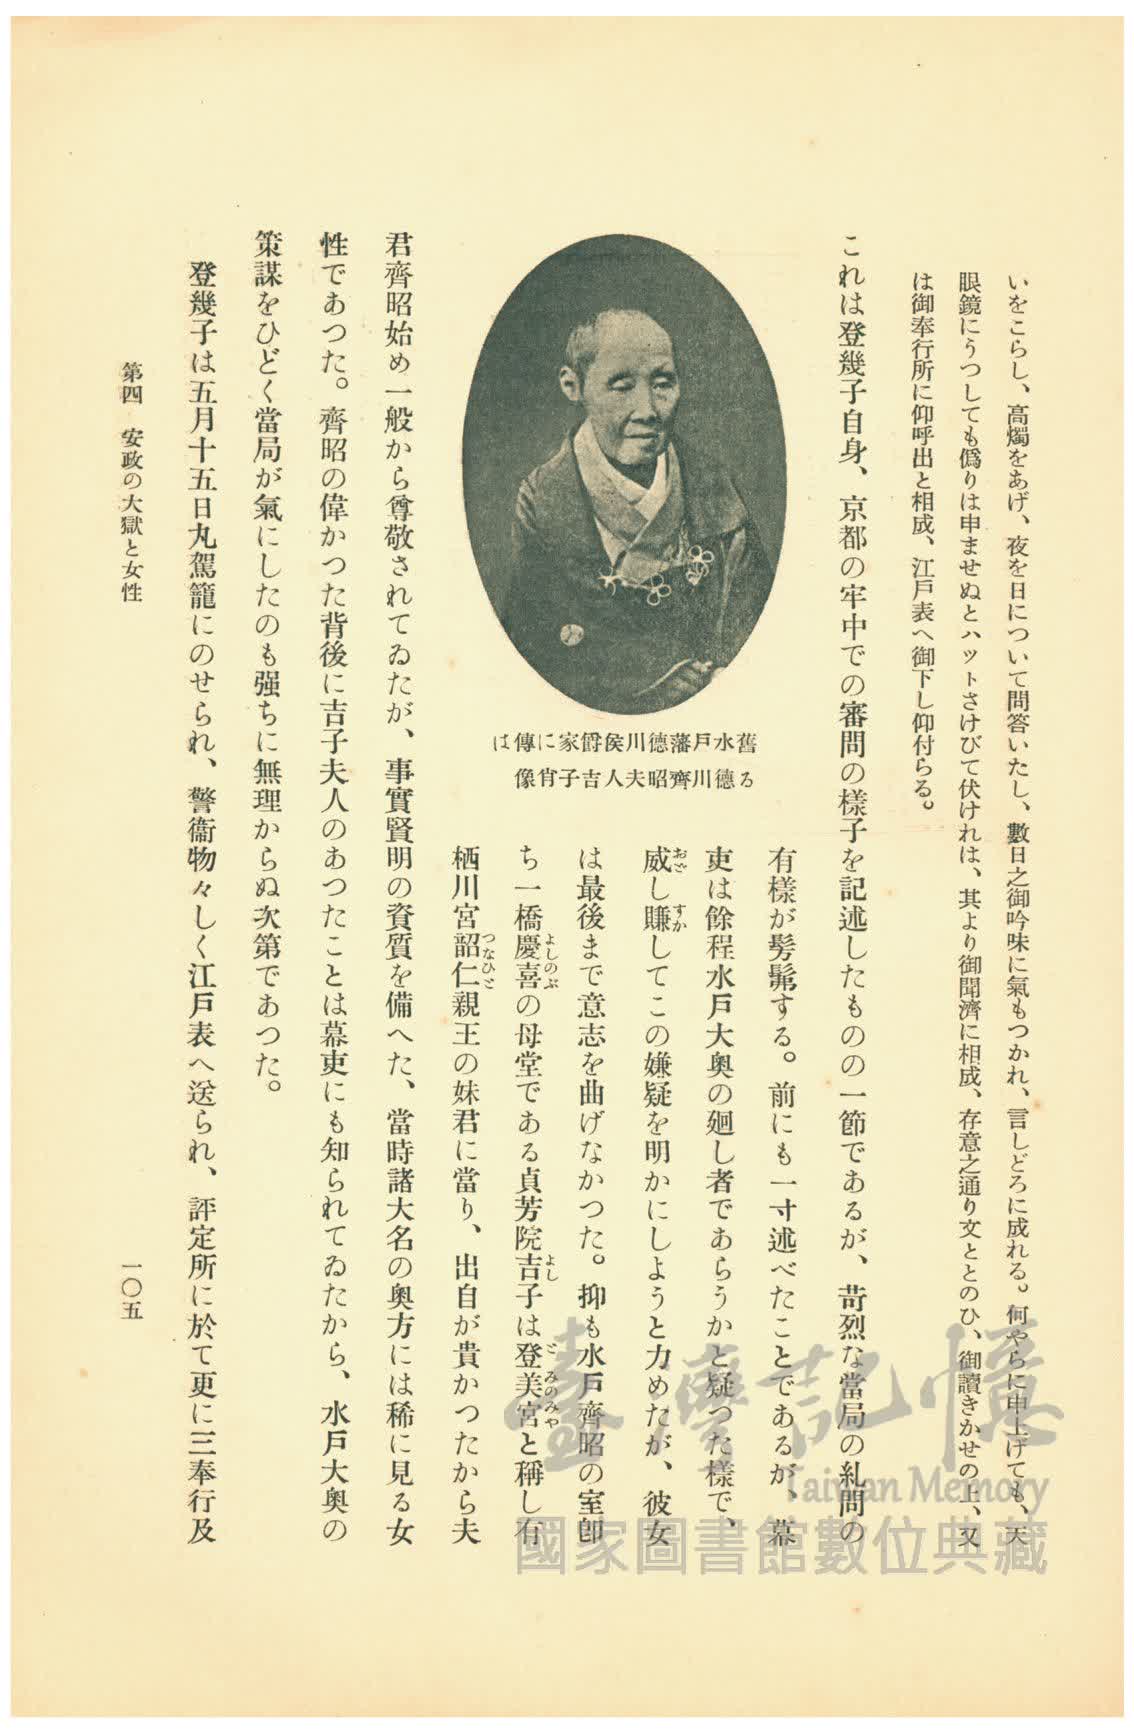 いをこらし、高燭をあげ、夜を日について問答いたし、數日之御吟味に氣もつかれ、言しどろに成れる。何やらに申上げても、天
眼鏡にうつしても僞りは申ませぬとハットさけびて伏ければ、其より御聞濟に相成、存意之通り文ととのひ、御讀きかせの上、又
は御奉行所に仰呼出と相成、江戸表へ御下し仰付らる。
これは登幾子自身、京都の牢中での審問の樣子を記述したものの一節であるが、苛烈な當局の糺問の
有樣が髣髴する。前にも一寸述べたことであるが、幕
吏は餘程水戸大奥の廻し者であらうかと疑つた樣で、
威し賺してこの嫌疑を明かにしようと力めたが、彼女
おど すか
は最後まで意志を曲げなかつた。抑も水戸齊昭の室卽
ち一橋慶喜の母堂である貞芳院吉子は登美宮と稱し有
よしのぶ よし とみのみや
栖川宮韶仁親王の妹君に當り、出自が貴かつたから夫
つなひと
舊水戸藩德川侯爵家に傳は
る德川齊昭夫人吉子肖像
君齊昭始め一般から尊敬されてゐたが、事實賢明の資質を備へた、當時諸大名の奥方には稀に見る女
性であつた。齊昭の偉かつた背後に吉子夫人のあつたことは幕吏にも知られてゐたから、水戸大奥の
策謀をひどく當局が氣にしたのも强ちに無理からぬ次第であつた。
登幾子は五月十五日丸駕籠にのせられ、警衞物々しく江戸表へ送られ、評定所に於て更に三奉行及
第四 安政の大獄と女性
一〇五
臺灣記憶
Taiwan Memory
國家圖書館數位典藏